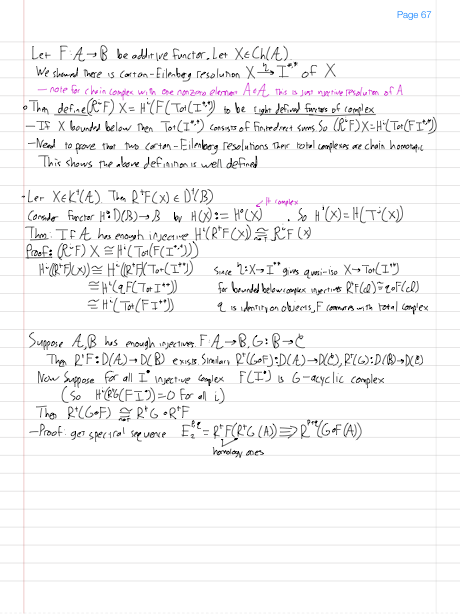 Page 67
Let F: A → B be additive functor. Let X ∈ Ch(A)
We showed there is cartan-Eilenberg resolution X →^η I^{•,•} of X
– note for chain complex with one nonzero element A∈A, this is just injective resolution of A
• Then define (R^iF) X = H^i(F(Tot(I^{•,•})) to be right defined functors of complex
– If X bounded below then Tot(I^{•,•}) consists of finite direct sums. So (R^iF)X = H^i(Tot(F I^{•,•}))
– Need to prove that two cartan-Eilenberg resolutions their total complexes are chain homotopic
This shows the above definition is well defined
• Let X∈K^+(A). Then R^+F(X) ∈ D^+(B)
complex
Consider functor H^i: D(B) → B by H(X) := H^0(X) . So H^i(X) = H(T^i(X))
Thm: If A has enough injective H^i(R^+F(X)) ≅ R^iF(X)
Proof: (R^iF) X ≅ H^i(Tot(F(I^{•,•})))
H^i((R^+F)(X)) ≅ H^i((R^+F)(Tot(I^{•,•})) since η: X → I^{•,•} gives quasi-iso X → Tot(I^{•,•})
≅ H^i(q F(Tot I^{•,•})) for bounded below complex injectives R^+F(q I) ≅ q∘F(I)
≅ H^i(Tot(F I^{•,•})) q is identity on objects, F commutes with total complex
Suppose A,B has enough injectives. F: A → B, G: B → C
Then R^+F: D(A) → D(B) exists. Similarly R^+(G∘F): D(A) → D(C), R^+(G): D(B) → D(C)
Now suppose for all I^• injective complex F(I^•) is G-acyclic complex
(So H^i(R^+G(F I^•)) = 0 for all i)
Then R^+(G∘F) ≅ R^+G ∘ R^+F
– Proof: get spectral sequence E_2^{p,q} = R^pF(R^qG(A)) ⇒ R^{p+q}(G∘F(A))
homology ones